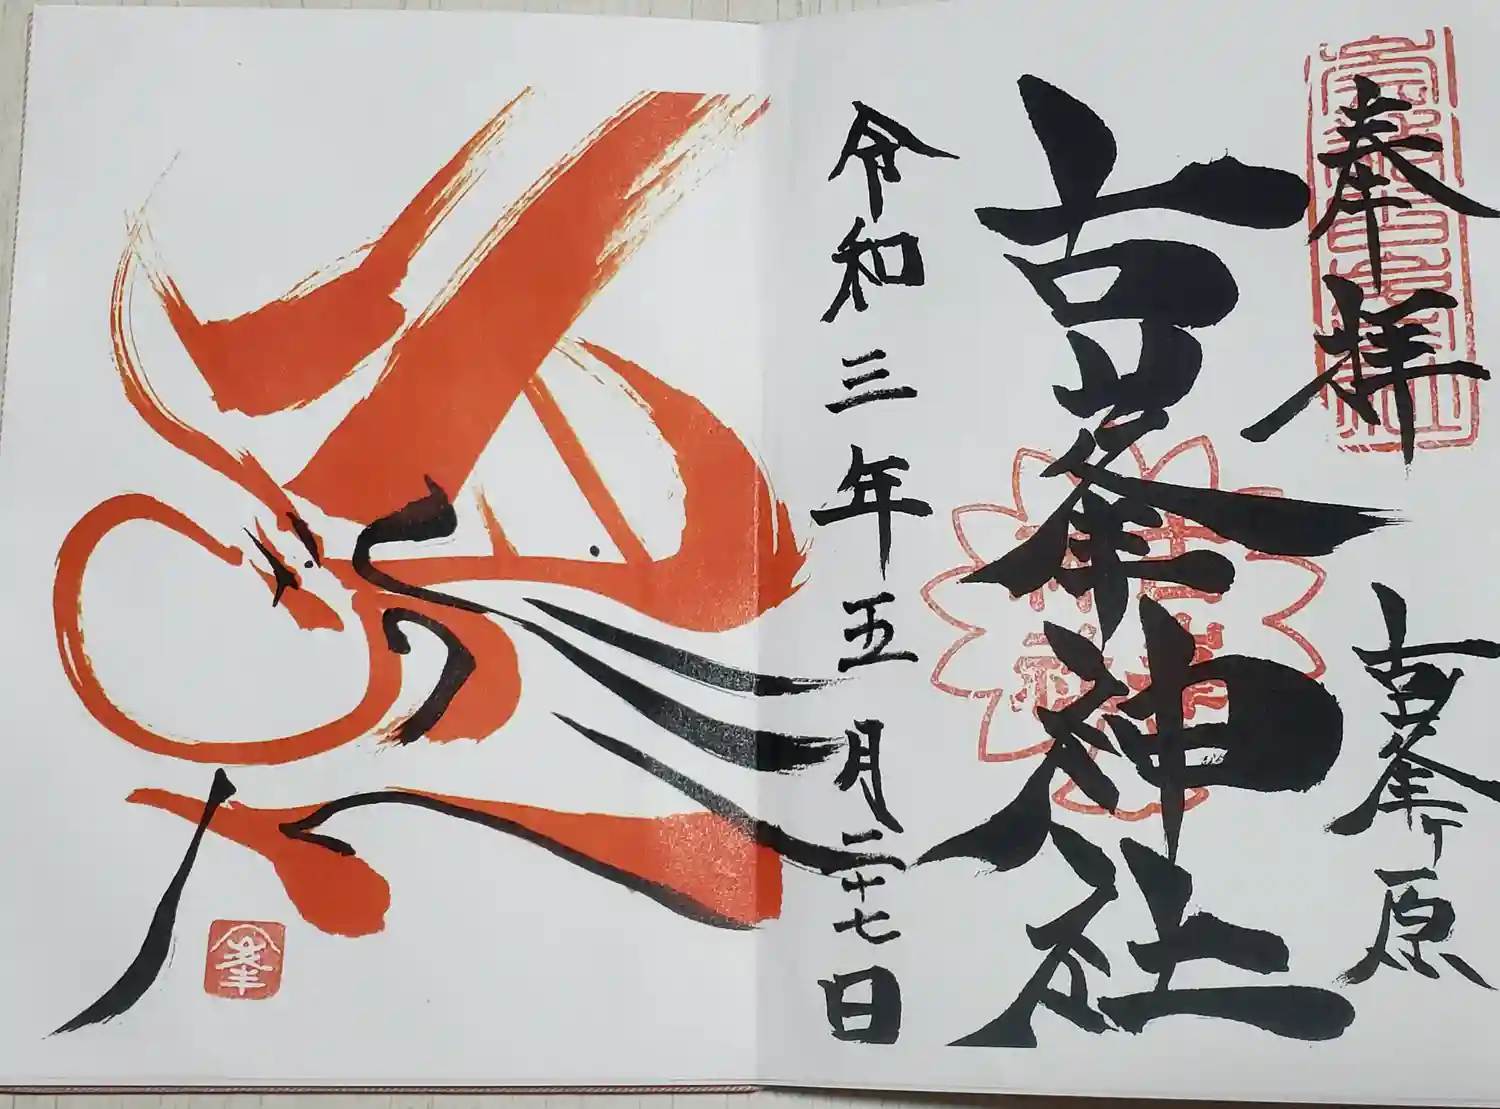 奉拝
古峯ヶ原
古峯神社
令和三年五月二十七日
峯